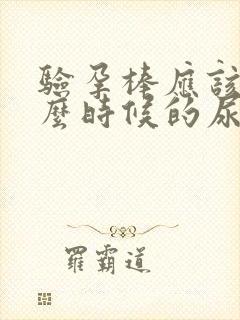 驗孕棒應該
麼時候的尿
羅霸道